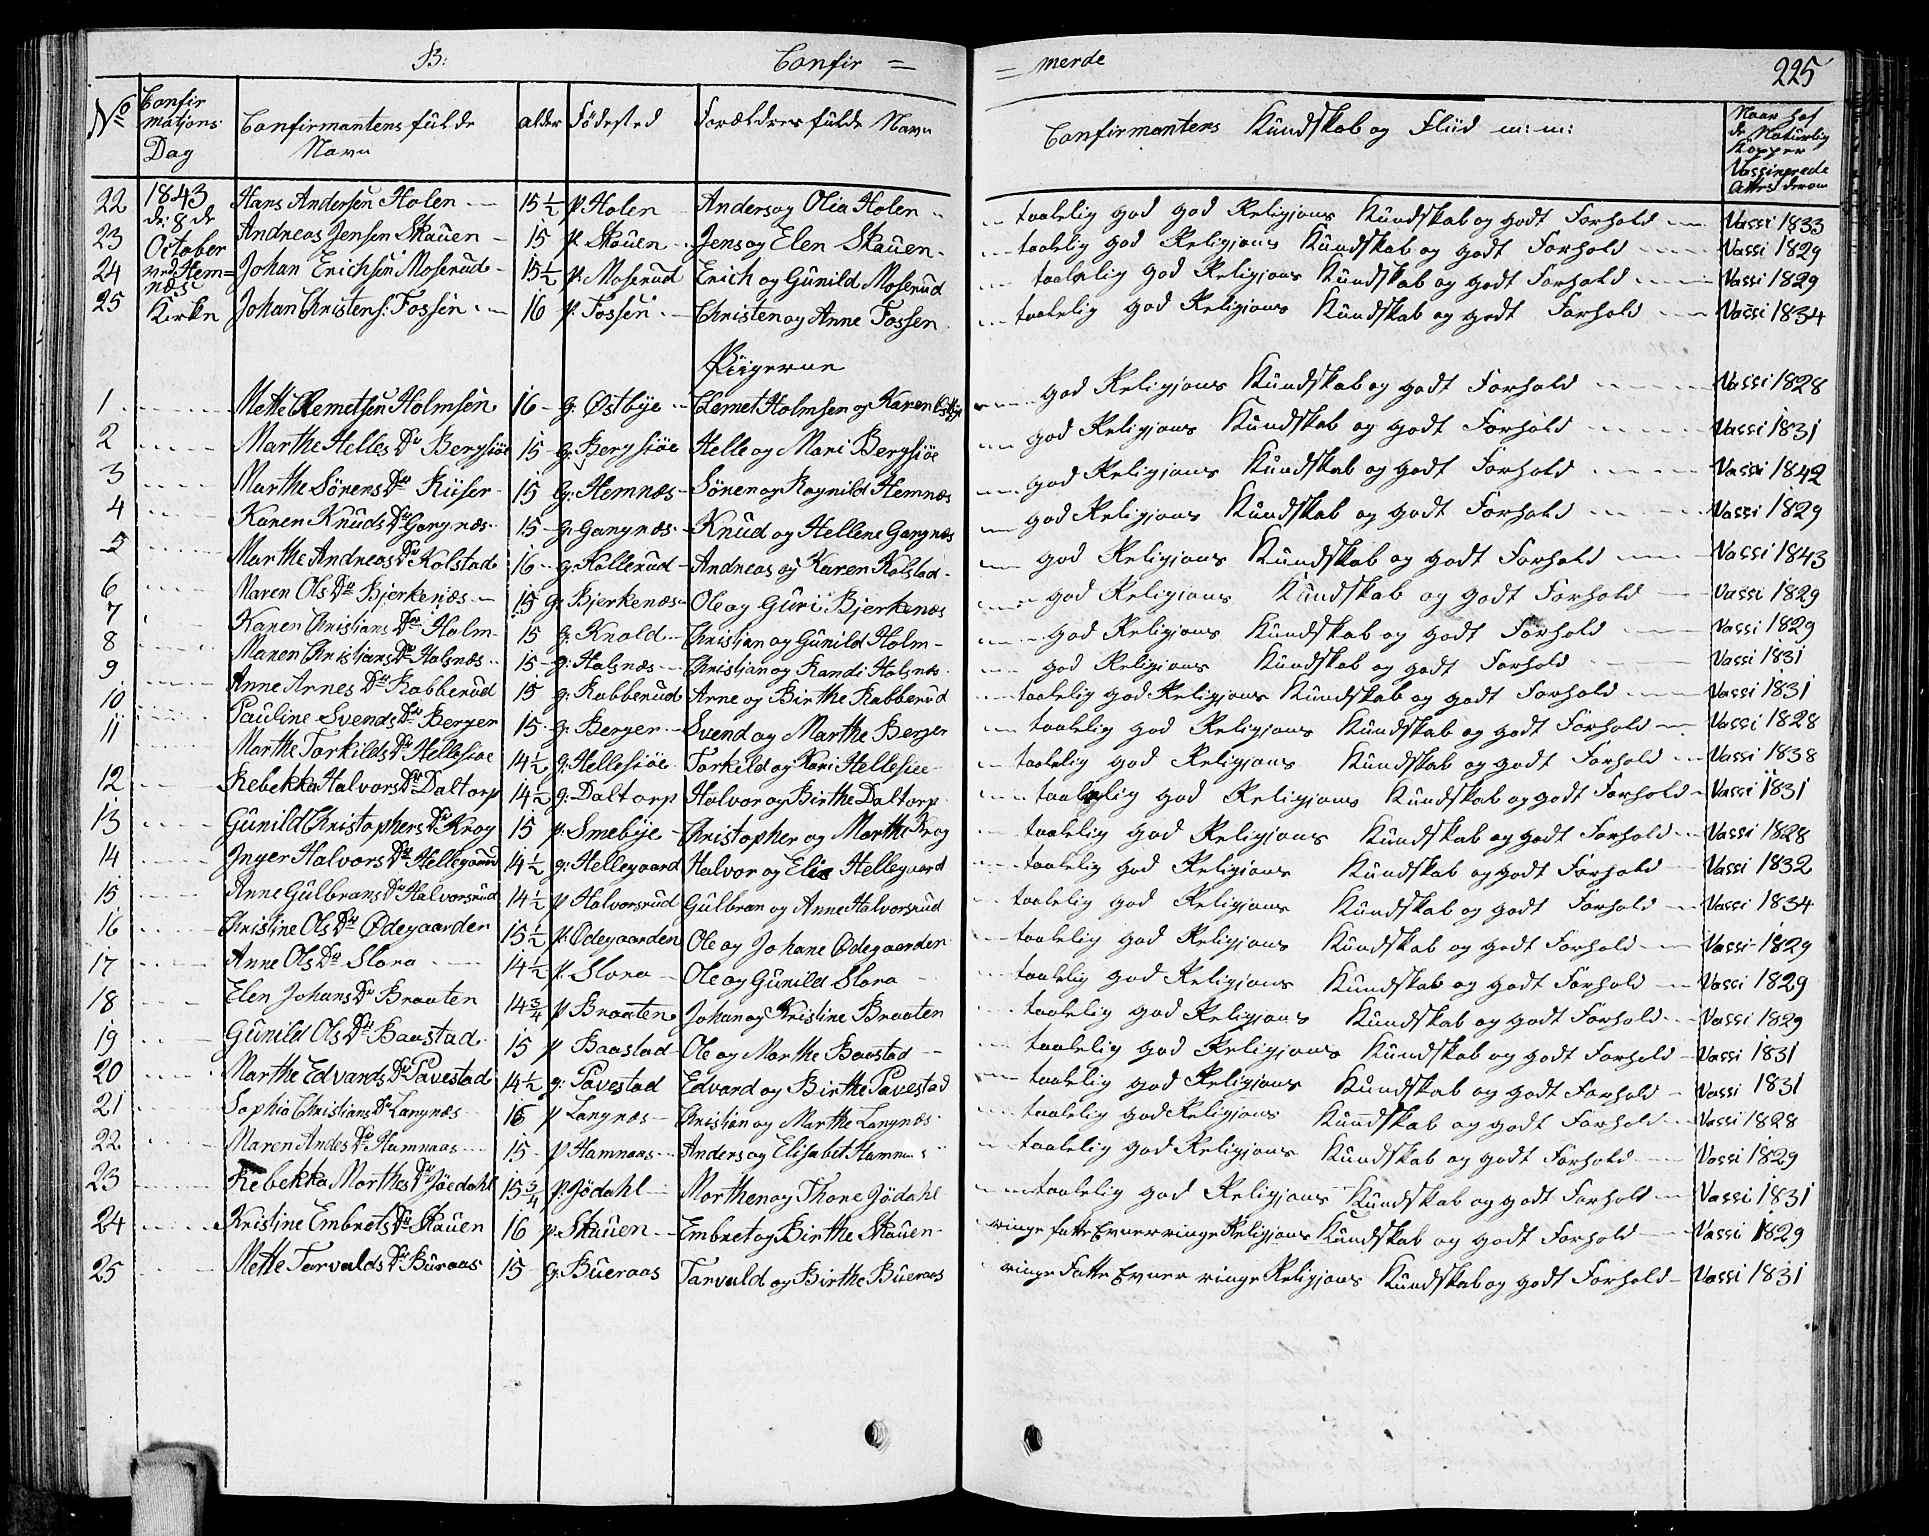 B: Confir = = merde 225
No Confirmations Dag Confirmantens fulde Navn alder Födested Forældres fulde Navn Confirmantens Kundskab og Fliid m: m: Naar haf de Naturlig Kopper Vassinerede Attest derom
1843 d: 8de October ved Hemnæs Kirke
22 Hans Andersen Holen 15 1/2 p Holen Anders og Olia Holen taalelig god god Religions Kundskab og godt Forhold Vassi 1833
23 Andreas Jensen Skauen 15 p. Skauen Jens og Elen Skauen taalelig god Religions Kundskab og godt Forhold Vassi 1829
24 Johan Erichsen Moserud 15 1/2 p. Moserud Erich og Gunild Moserud taalelig god Religions Kundskab og godt Forhold Vassi 1829
25 Johan Christens: Fossen 16 p. Fossen Christen og Anne Fossen taalelig god Religions Kundskab og godt Forhold Vassi 1834
Piigerne
1 Mette Clemetsen Holmsen 16 g: Østbye Clemet Holmsen og Karen Østbye god Religions Kundskab og godt Forhold Vassi 1828
2 Marthe Helles Dr Bergsiöe 15 g: Bergsiöe Helle og Mari Bergsiöe god Religions Kundskab og godt Forhold Vassi 1831
3 Marthe Sörens Dr Riiser 15 g: Hemnæs Sören og Ragnild Hemnæs god Religions Kundskab og godt Forhold Vassi 1842
4 Karen Knuds Dr Gangnæs 15 g: Gangnæs Knud og Hellene Gangnæs god Religions Kundskab og godt Forhold Vassi 1829
5 Marthe Andreas Dr Kolstad 16 g: Kollerud Andreas og Karen Kolstad god Religions Kundskab og godt Forhold Vassi 1843
6 Maren Ols Dr Bjerkenæs 15 g: Bjerkenæs Ole og Guri Bjerkenæs god Religions Kundskab og godt Forhold Vassi 1829
7 Karen Christians Dr Holm 15 g: Knold Christian og Gunild Holm god Religions Kundskab og godt Forhold Vassi 1829
8 Maren Christians Dr Halsnæs 15 g: Halsnæs Christian og Randi Halsnæs god Religions Kundskab og godt Forhold Vassi 1831
9 Anne Arnes Dr Rabberud 15 g: Rabberud Arne og Birthe Rabberud taalelig god Religions Kundskab og godt Forhold Vassi 1831
10 Pauline Svends Dr Berger 15 g: Berger Svend og Marthe Berger taalelig god Religions Kundskab og godt Forhold Vassi 1828
11 Marthe Torkilds Dr Hellesiöe 14 1/2 g: Hellesiöe Torkild og Kari Hellesiöe taalelig god Religions Kundskab og godt Forhold Vassi 1838
12 Rebekka Halvors Dr Daltorp 14 1/2 g: Daltorp Halvor og Birthe Daltorp taalelig god Religions Kundskab og godt Forhold Vassi 1831
13 Gunild Christophers Dr Krog 15 p: Smebye Christopher og Marthe Krog taalelig god Religions Kundskab og godt Forhold Vassi 1828
14 Inger Halvors Dr Hellegaard 14 1/2 g: Hellegaard Halvor og Elia Hellegaard taalelig god Religions Kundskab og godt Forhold Vassi 1832
15 Anne Gulbrans Dr Halvorsrud 14 1/2 p Halvorsrud Gulbran og Anne Halvorsrud taalelig god Religions Kundskab og godt Forhold Vassi 1834
16 Christine Ols Dr Ødegaarden 15 1/2 p. Ødegaarden Ole og Johane Ødegaarden taalelig god Religions Kundskab og godt Forhold Vassi 1829
17 Anne Ols Dr Slora 14 1/2 p. Slora Ole og Gunild Slora taalelig god Religions Kundskab og godt Forhold Vassi 1829
18 Elen Johans Dr Braaten 14 3/4 p Braaten Johan og Kristine Braaten taalelig god Religions Kundskab og godt Forhold Vassi 1829
19 Gunild Ols Dr Baastad 15 p Baastad Ole og Marthe Baastad taalelig god Religions Kundskab og godt Forhold Vassi 1831
20 Marthe Edvards Dr Pavestad 14 1/2 g: Pavestad Edvard og Birthe Pavestad taalelig god Religions Kundskab og godt Forhold Vassi 1831
21 Sophia Christians Dr Langnæs 16 p Langnæs Christian og Marthe Langnæs taalelig god Religions Kundskab og godt Forhold Vassi 1828
22 Maren Andes Dr Hamnaas 15 p Hamnaas Anders og Elisabet Hamnaas taalelig god Religions Kundskab og godt Forhold Vassi 1829
23 Rebekka Morthes Dr Jöedahl 15 3/4 p. Jödahl Morthen og Thone Jödahl taalelig god Religions Kundskab og godt Forhold Vassi 1831
24 Kristine Embrets Dr Skauen 16 p. Skauen Embret og Birthe Skauen ringe fatte Evner ringe Religions Kundskab og godt Forhold Vassi 1829
25 Mette Torvalds Dr Buraas 15 g. Bueraas Torvald og Birthe Bueraas ringe Fatte Evner ringe Religions Kundskab og godt Forhold Vassi 1831